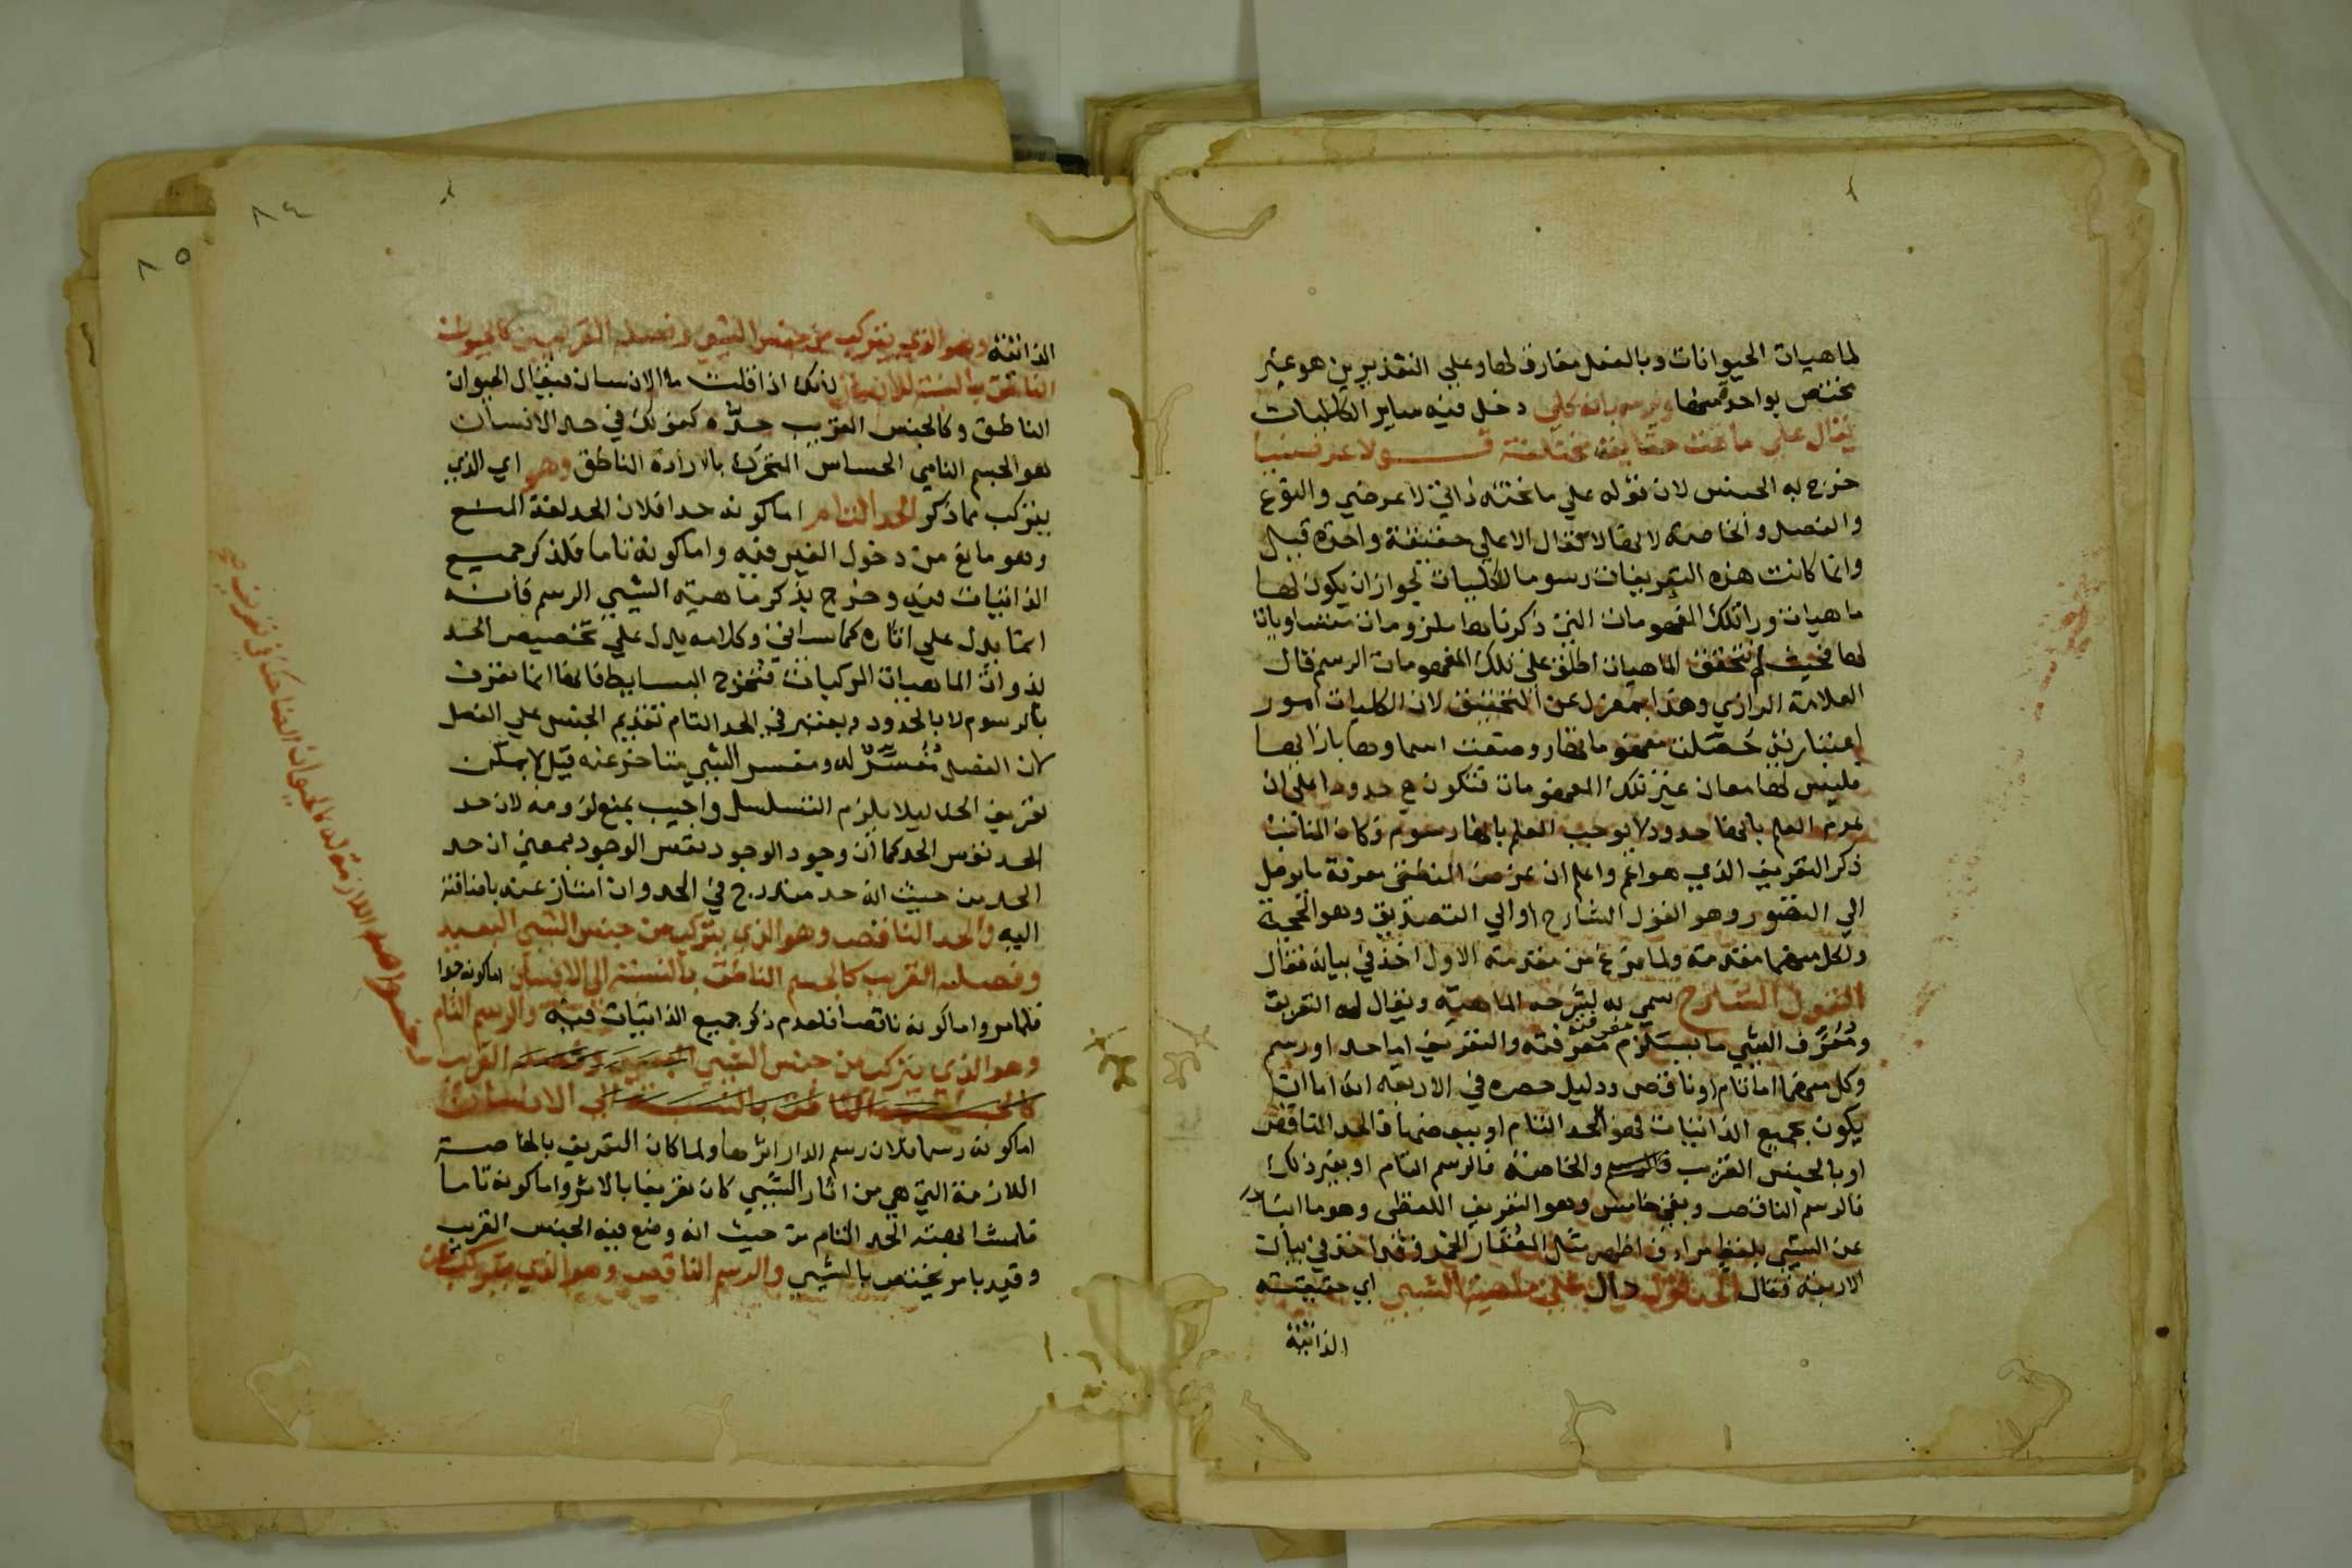 لماهيات الحيوانات وبالفعل مفارق لها وعلي التقديرين هو غير
مختص بواحد منها ويرسم بانه كلي دخل فيه ساير الكليات
يقال علي ما تحت حقايق مختلفة قولا عرضيا
خرج به الجنس لان قوله علي ما تحته ذاتي لا عرضي والنوع
والفصل والخاصة لانها لا تقال الا علي حقيقة واحدة قيل
وانما كانت هذه التعريفات رسوما للكليات لجواز ان يكون لها
ماهيات ورا تلك المفهومات التي ذكرناها ملزومات متساويات
لها فحيث لم تتحقق الماهيات اطلق علي تلك المفهومات الرسم قال
العلامة الرازي وهذا بمعزل عن التحقيق لان الكليات امور
اعتبارية حصلت مفهوماتها ووضعت اسماوها بازايها
فليس لها معان غير تلك المفهومات فتكون هي حدودا علي ان
عدم العلم بانها حدود لا يوجب العلم بانها رسوم وكان المناسب
ذكر التعريف الذي هو اعم واعلم ان غرض المنطقي معرفة ما يوصل
الي التصور وهو القول الشارح او الي التصديق وهو الحجة
ولكل منهما مقدمة ولما فرغ من مقدمة الاول اخذ في بيانه فقال
القول الشارح سمي به لشرحه الماهية ويقال له التعريف
ومعرف الشي ما يستلزم معرفته معرفته والتعريف اما حد او رسم
وكل منهما اما تام او ناقص ودليل حصره في الاربعة انه اما ان
يكون بجميع الذاتيات فهو الحد التام او ببعضها فالحد الناقص
او بالجنس القريب والخاصة فالرسم التام او بغير ذلك
فالرسم الناقص وبقي خامس وهو التعريف اللفظي وهو ما انبا
عن الشي بلفظ مرادف اظهر مثل العقار الخمر وقد اخذ في بيان
الاربعة فقال الحد قول دال علي ماهية الشي اي حقيقته
الذاتية
٨٤
٨٥
الذاتية وهو الذي يتركب من جنس الشي وفصله القريبين كالحيوان
الناطق بالنسبة للانسان لانك اذا قلت ما الانسان فيقال الحيوان
الناطق وكالجنس القريب حده كقولك في حد الانسان
هو الجسم النامي الحساس المتحرك بالارادة الناطق وهو اي الذي
يتركب مما ذكر الحد التام اما كونه حدا فلان الحد لغة المنع
وهو مانع من دخول الغير فيه واما كونه تاما فلذكر جميع
الذاتيات فيه وخرج بذكر ماهية الشي الرسم فانه
انما يدل علي اثاره كما سياتي وكلامه يدل علي تخصيص الحد
بذوات الماهيات المركبات فتخرج البسايط فانها انما تعرف
بالرسوم لا بالحدود ويعتبر في الحد التام تقديم الجنس علي الفصل
لان الفصل مفسر له ومفسر الشي متاخر عنه قيل لا يمكن
تعريف الحد ليلا يلزم التسلسل واجيب بمنع لزومه لان حد
الحد نفس الحد كما ان وجود الوجود نفس الوجود بمعني ان حد
الحد من حيث انه حد مندرج في الحد وان امتاز عنه باضافته
اليه والحد الناقص وهو الذي يتركب من جنس الشي البعيد
وفصله القريب كالجسم الناطق بالنسبة الي الانسان اما كونه حدا
فلما مر واما كونه ناقصا فلعدم ذكر جميع الذاتيات فيه والرسم التام
وهو الذي يتركب من جنس الشي البعيد وفصله القريب
كالجسم الناطق بالنسبة الي الانسان
اما كونه رسما فلان رسم الدار اثرها ولما كان التعريف بالخاصة
اللازمة التي هي من اثار الشي كان تعريفا بالاثر واما كونه تاما
فلمشابهته الحد التام من حيث انه وضع فيه الجنس القريب
وقيد بامر يختص بالشي والرسم الناقص وهو الذي يتركب عن
وخواصه اللازمة له كالحيوان الضاحك في تعريف